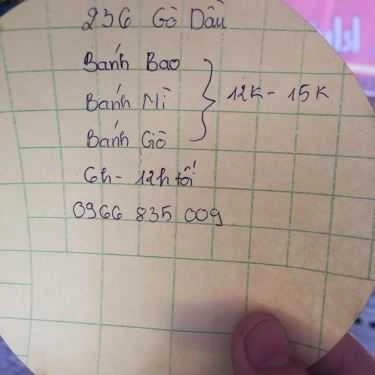 236 Gò Dầu
Bánh Bao
Bánh Mì } 12k - 15k
Bánh Giò
6h - 12h tối
0966 835 009